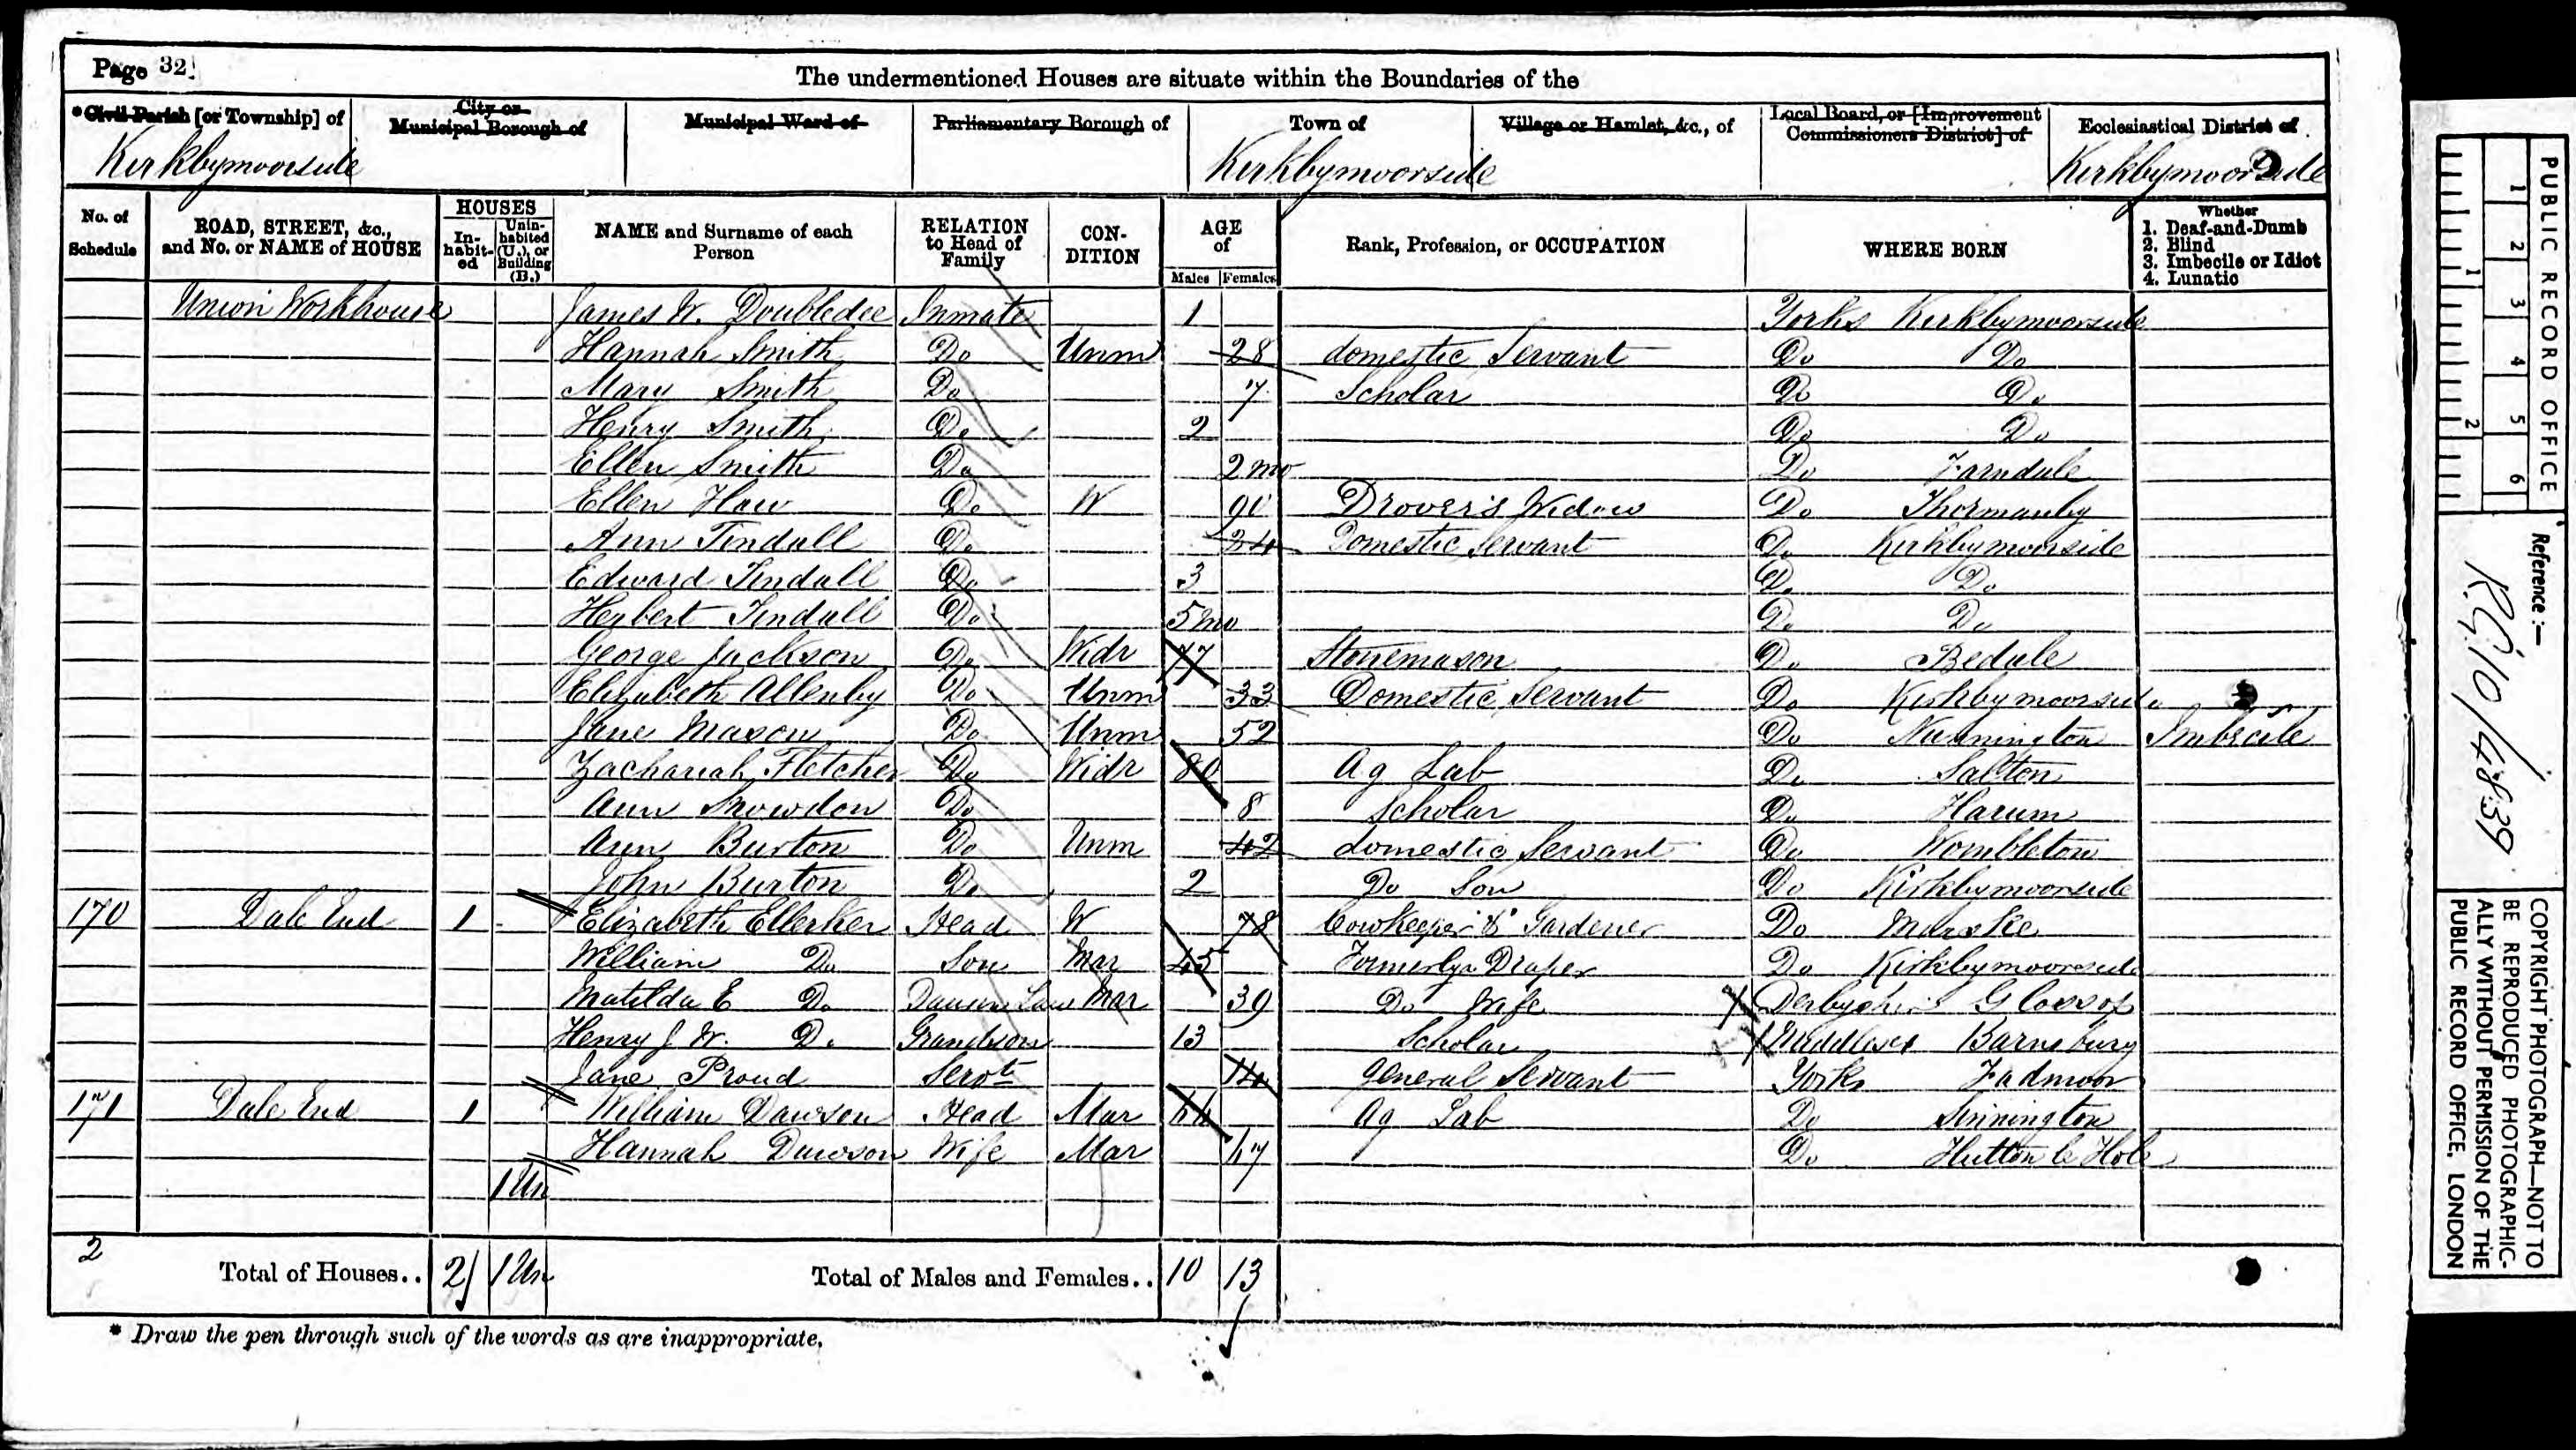 Page 32
The undermentioned Houses are situate within the Boundaries of the
*Civil Parish [or Township] of
City or Municipal Borough of
Municipal Ward of
Parliamentary Borough of
Town of
Village or Hamlet, &c., of
Local Board, or [Improvement Commissioners District] of
Ecclesiastical District of
Kirkbymoorside Kirkbymoorside Kirkbymoorside
No. of Schedule
ROAD, STREET, &c., and No. or NAME of HOUSE
HOUSES
In-habit-ed
Unin-habited (U.), or Building (B.)
NAME and Surname of each Person
RELATION to Head of Family
CON-DITION
AGE of
Males Females
Rank, Profession, or OCCUPATION
WHERE BORN
Whether
1. Deaf-and-Dumb
2. Blind
3. Imbecile or Idiot
4. Lunatic
Union Workhouse James W. Doubledee Inmate 1 Yorks Kirkbymoorside
Hannah Smith Do Unm 28 domestic Servant Do Do
Mary Smith Do 7 Scholar Do Do
Henry Smith Do 2 Do Do
Ellen Smith Do 2 mo Do Farndale
Ellen Haw Do W 90 Drover's Widow Do Thormanby
Ann Tindall Do 24 Domestic Servant Do Kirkbymoorside
Edward Tindall Do 3 Do Do
Herbert Tindall Do 5 mo Do Do
George Jackson Do Widr 77 Stonemason Do Bedale
Elizabeth Allenby Do Unm 33 Domestic Servant Do Kirkbymoorside
Jane Mason Do Unm 52 Do Nunnington Imbecile
Zachariah Fletcher Do Widr 80 Ag Lab Do Salton
Ann Snowdon Do 8 Scholar Do Harum
Ann Burton Do Unm 42 domestic Servant Do Wombleton
John Burton Do 2 Do Son Do Kirkbymoorside
170 Dale End 1 Elizabeth Ellerker Head W 78 Cowkeeper & Gardener Do Marske
William Do Son Mar 45 Formerly Draper Do Kirkbymoorside
Matilda E Do Daur in Law Mar 39 Do Wife Derbyshire Glossop
Henry J. W. Do Grandson 13 Scholar Middlesex Barnsbury
Jane Proud Servt 14 General Servant Yorks Fadmoor
171 Dale End 1 William Dawson Head Mar 66 Ag Lab Do Sinnington
Hannah Dawson Wife Mar 67 Do Hutton le Hole
1 Un
2 Total of Houses.. 2 1 Un Total of Males and Females.. 10 13
* Draw the pen through such of the words as are inappropriate.
PUBLIC RECORD OFFICE
1 2 3 4 5 6
1 2
Reference :—
R.G. 10/4839
COPYRIGHT PHOTOGRAPH—NOT TO
BE REPRODUCED PHOTOGRAPHIC-
ALLY WITHOUT PERMISSION OF THE
PUBLIC RECORD OFFICE, LONDON